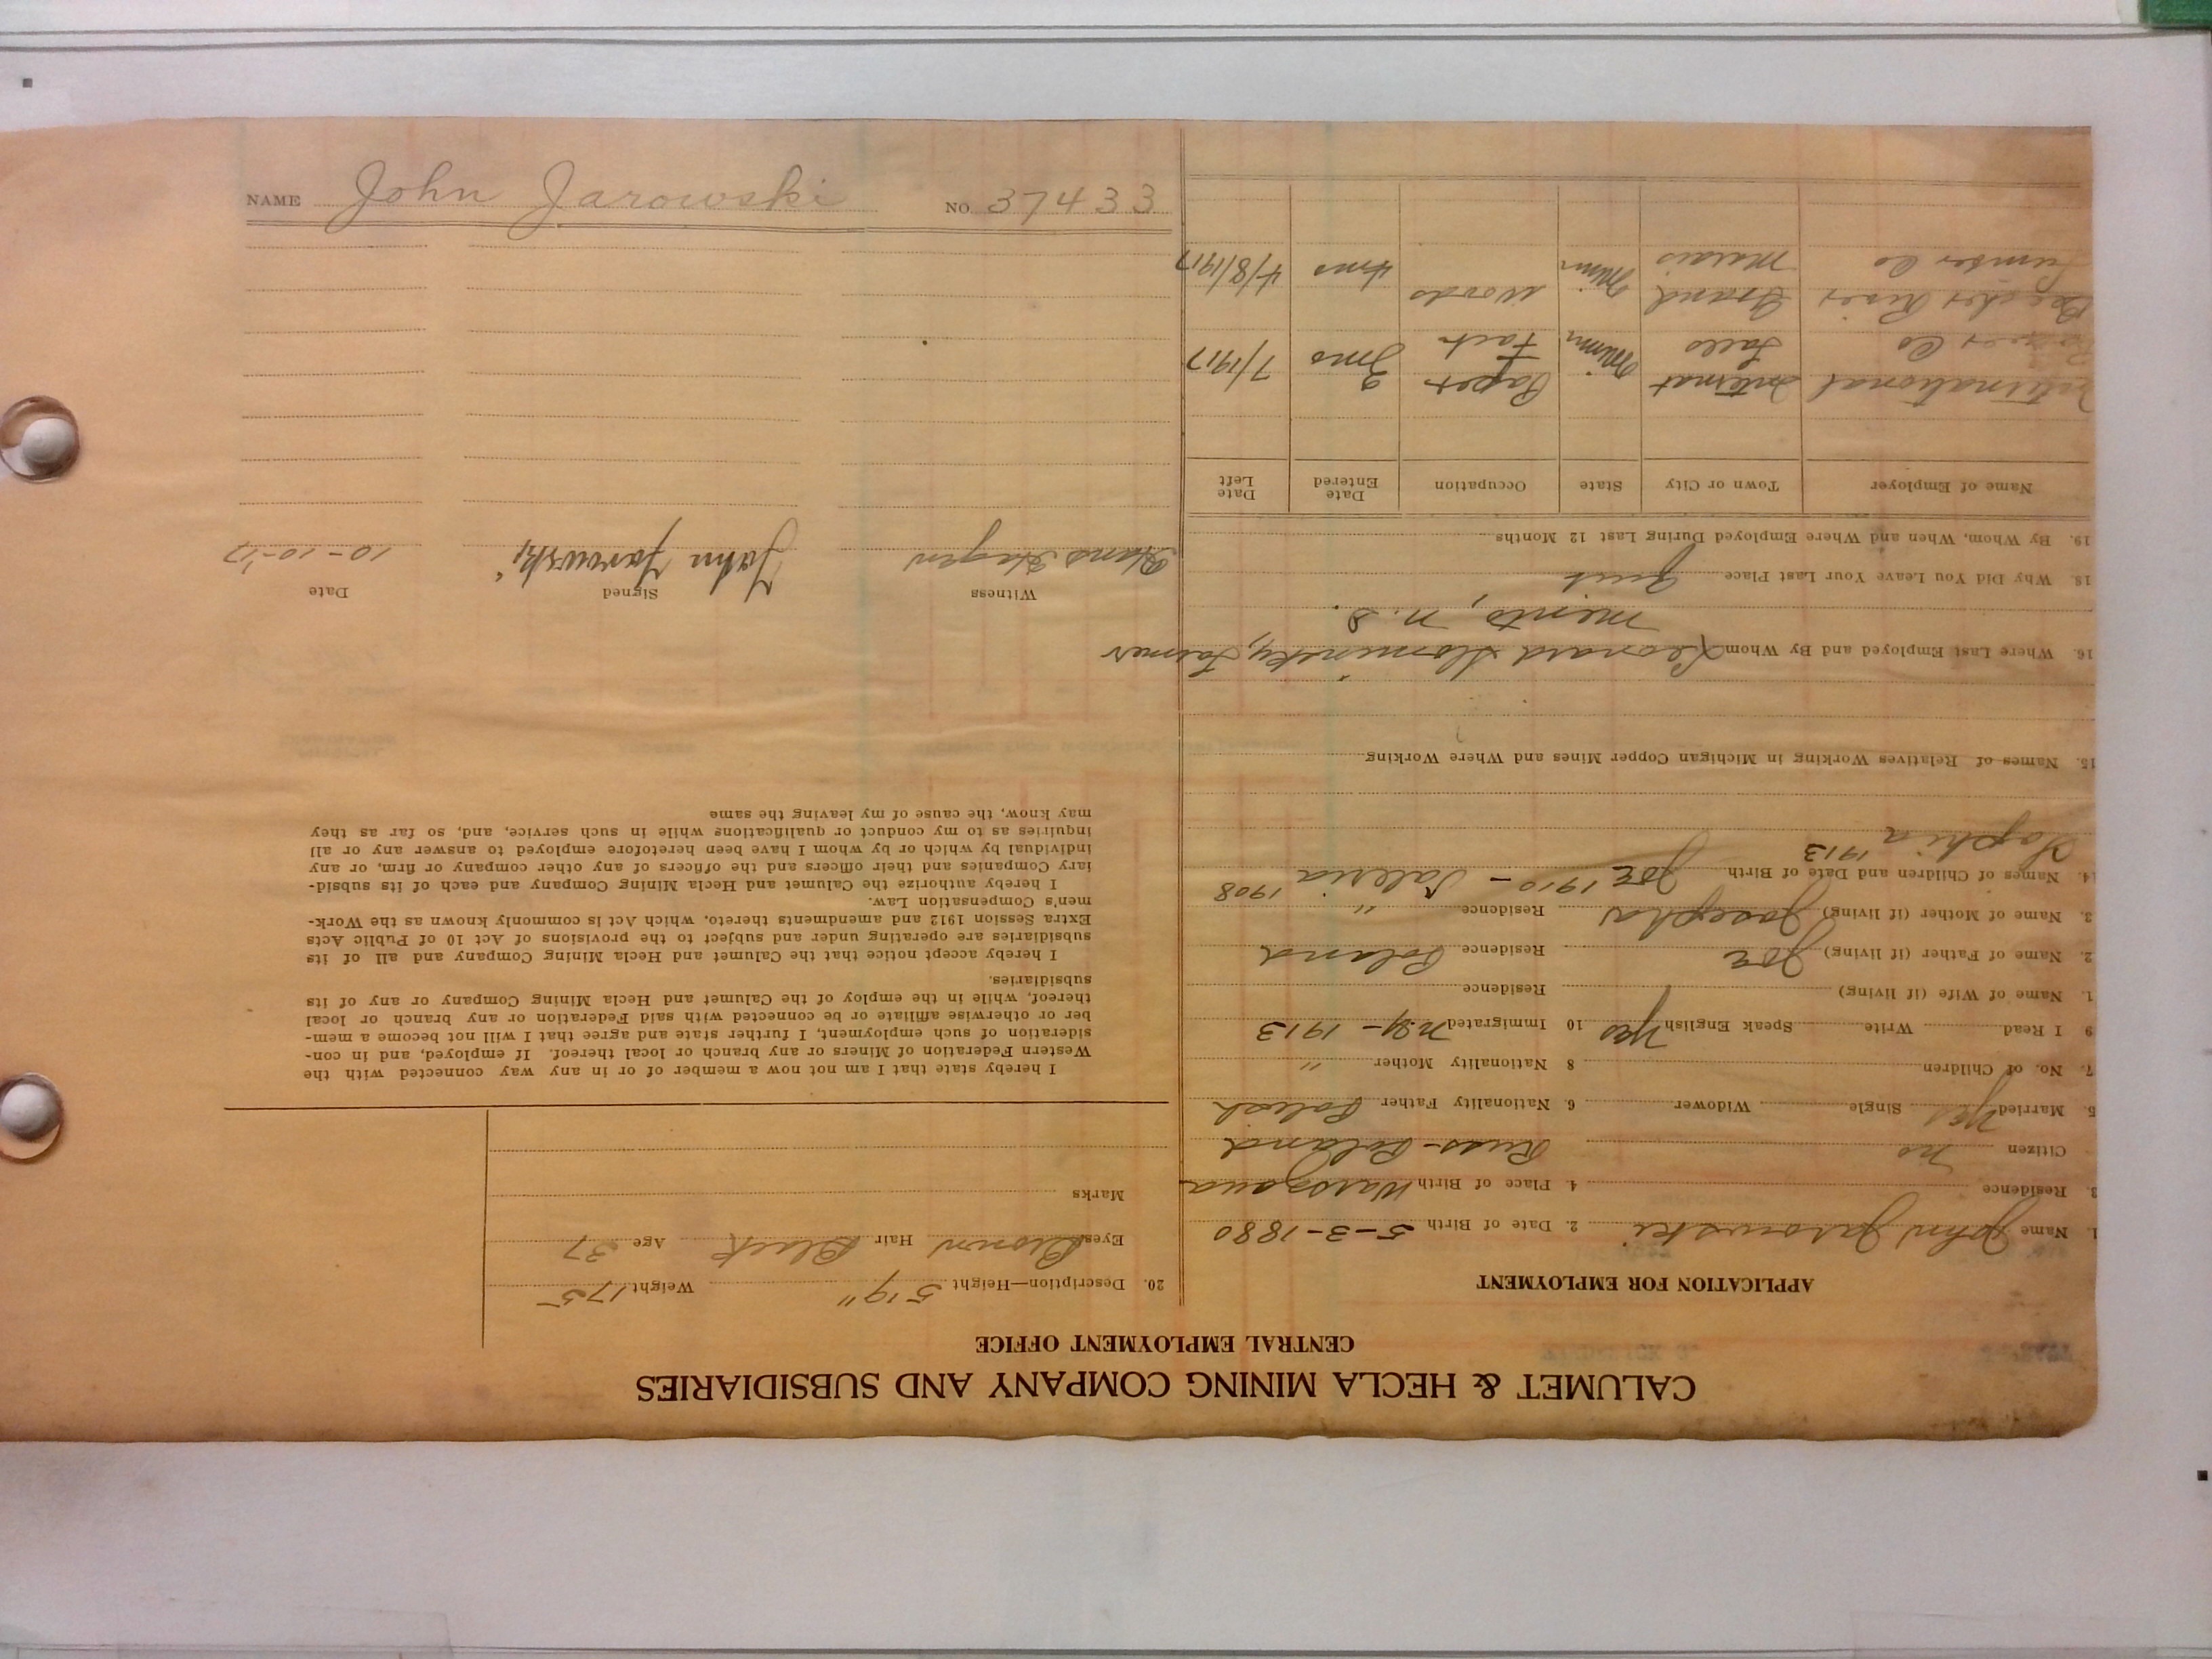 CALUMET & HECLA MINING COMPANY AND SUBSIDIARIES
CENTRAL EMPLOYMENT OFFICE
APPLICATION FOR EMPLOYMENT
1. Name John Jarowski 2. Date of Birth 5-3-1880
3. Residence 4. Place of Birth Warszava
Citizen no Russ-Poland
5. Married yes Single Widower 6. Nationality Father Polish
7. No. of Children 8 Nationality Mother "
9 I Read Write Speak English yes 10 Immigrated N.Y. - 1913
1. Name of Wife (if living) Residence
2. Name of Father (if living) Joe Residence Poland
3. Name of Mother (if living) Josepha Residence "
14. Names of Children and Date of Birth Joe 1910 - Valeria 1908
Sophia 1913
15. Names of Relatives Working in Michigan Copper Mines and Where Working
16. Where Last Employed and By Whom Leonard Farmer
Minto, N. D.
18. Why Did You Leave Your Last Place Quit
19. By Whom, When and Where Employed During Last 12 Months
Name of Employer Town or City State Occupation Date Entered Date Left
International Internat Minn Paper 3mo 7/1917
Co Falls Fact
River Grand Minn Woods 4mo 4/8/1917
Lumber Co Marais
20. Description—Height 5'9" Weight 175
Eyes Brown Hair Black Age 37
Marks
I hereby state that I am not now a member of or in any way connected with the
Western Federation of Miners or any branch or local thereof. If employed, and in con-
sideration of such employment, I further state and agree that I will not become a mem-
ber or otherwise affiliate or be connected with said Federation or any branch or local
thereof, while in the employ of the Calumet and Hecla Mining Company or any of its
subsidiaries.
I hereby accept notice that the Calumet and Hecla Mining Company and all of its
subsidiaries are operating under and subject to the provisions of Act 10 of Public Acts
Extra Session 1912 and amendments thereto, which Act is commonly known as the Work-
men's Compensation Law.
I hereby authorize the Calumet and Hecla Mining Company and each of its subsid-
iary Companies and their officers and the officers of any other company or firm, or any
individual by which or by whom I have been heretofore employed to answer any or all
inquiries as to my conduct or qualifications while in such service, and, so far as they
may know, the cause of my leaving the same
Witness Signed Date
Hans Hagen John Jarowski 10-10-17
NAME John Jarowski NO. 37433